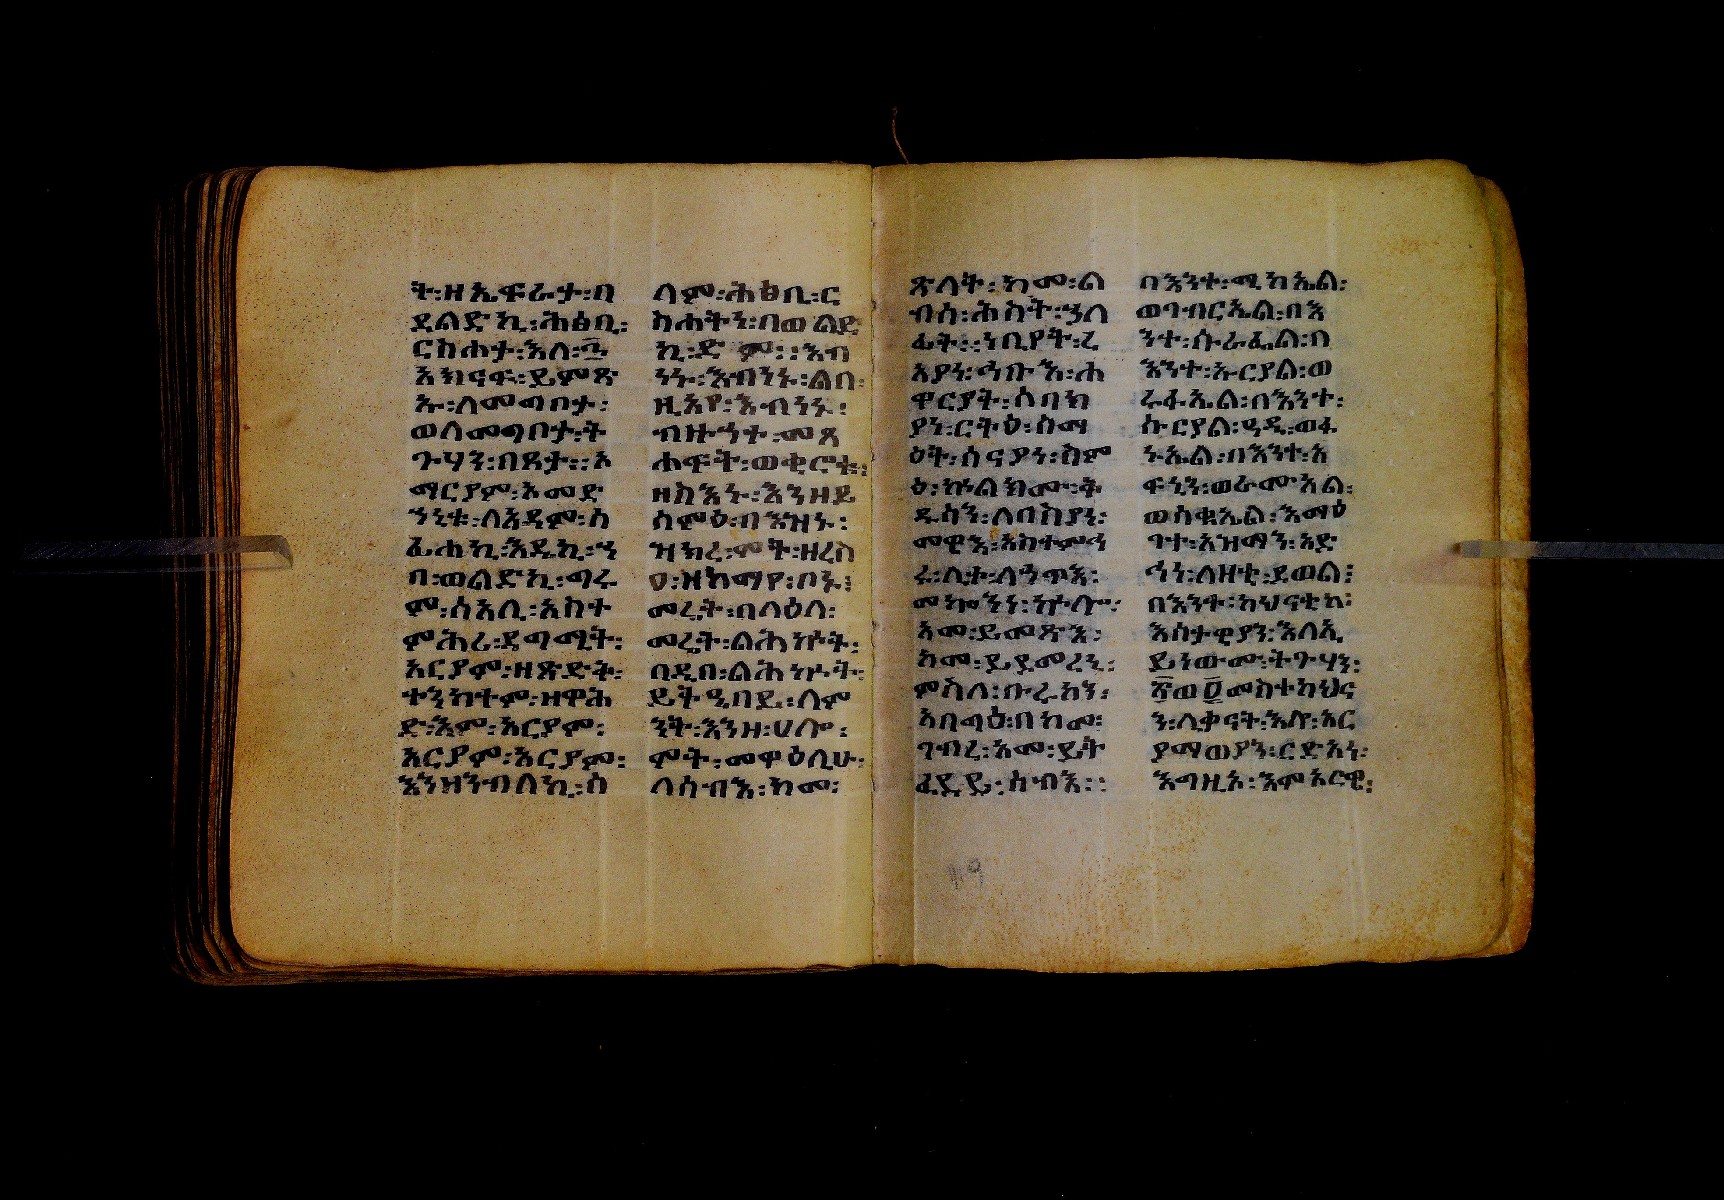 ት፡ዘኢፍራታ፡በ
ደልድኪ፡ሕፅቢ፡
ርስሐታ፡እለ፡፬
አክናፍ፡ይምጽ
ኡ፡ለመግቦታ፡
ወለመግቦታ፡ት
ጉሃን፡በጻታ።ኦ
ማርያም፡እመድ
ኀኒቱ፡ለአዳም፡ስ
ፊሐኪ፡እዴኪ፡ኀ
በ፡ወልድኪ፡ግሩ
ም፡ሰአሊ፡አከተ
ምሕሪ፡ደግሚት፡
አርያም፡ዘጽድት፡
ተንከተም፡ዘዋሕ
ድ፡እም፡አርያም፡
አርያም፡አርያም፡
እንዘንብለኪ፡ሰ
ላም፡ሕፅቢ፡ር
ስሐትን፡በወልድ
ኪ፡ድም።እብ
ንኑ፡እብንኑ፡ልበ፡
ዚአየ፡እብንኑ፡
ብዙኀት፡መጻ
ሐፍት፡ወቂሮቱ፡
ዘከእኑ፡እንዘይ
ሰምዕ፡በእዝኑ፡
ዝክረ፡ሞት፡ዘረሰ
ዐ፡ዘከማየ፡በኑ፡
መሬት፡በላዕለ፡
መሬት፡ልሕኵት፡
በዲበ፡ልሕኵት፡
ይትዔበይ፡ለም
ንት፡እንዘ፡ሀሎ፡
ሞት፡መዋዕሊሁ፡
ለሰብእ፡ከመ፡
ጽላት፡ከመ፡ል
ብስ፡ሕስት፡ኃለ
ፊት።ነቢያት፡ረ
አያነ፡ኅቡእ፡ሐ
ዋርያት፡ሰበክ
ያነ፡ርትዕ፡ሰማ
ዕት፡ሰናያነ፡ስም
ዕ፡ኵልክሙ፡ቅ
ዱሳን፡ለባስያነ፡
መዊእ፡አስተምኅ
ሩ፡ሊተ፡ለኃጥእ፡
መኰንነ፡ኵሎ፡
አመ፡ይመጽእ፡
አመ፡ይደመረኒ፡
ምስለ፡ቡሩካን፡
አባግዕ፡በከመ፡
ገብረ፡አመ፡ይት
ፈደይ፡ሰብእ።
በእንተ፡ሚካኤል፡
ወገብርኤል፡በእ
ንተ፡ሱራፌል፡በ
እንተ፡ኡርያል፡ወ
ሩፋኤል፡በእንተ፡
ሱርያል፡ዳዲ፡ወፋ
ኑኤል፡በእንተ፡አ
ፍኒን፡ወራሙኤል፡
ወሰቋኤል፡እማዕ
ገተ፡አዝማን፡አድ
ኅነ፡ለዘቲ፡ደወል፡
በእንተ፡ከህናቲከ፡
እስታዊያን፡እለኢ
ይነውሙ፡ትጉሃን፡
፳ወ፬መስተከህና
ን፡ሊቃናት፡እለ፡አር
ያማወያን፡ርድአነ፡
እግዚኦ፡እምአርዌ፡